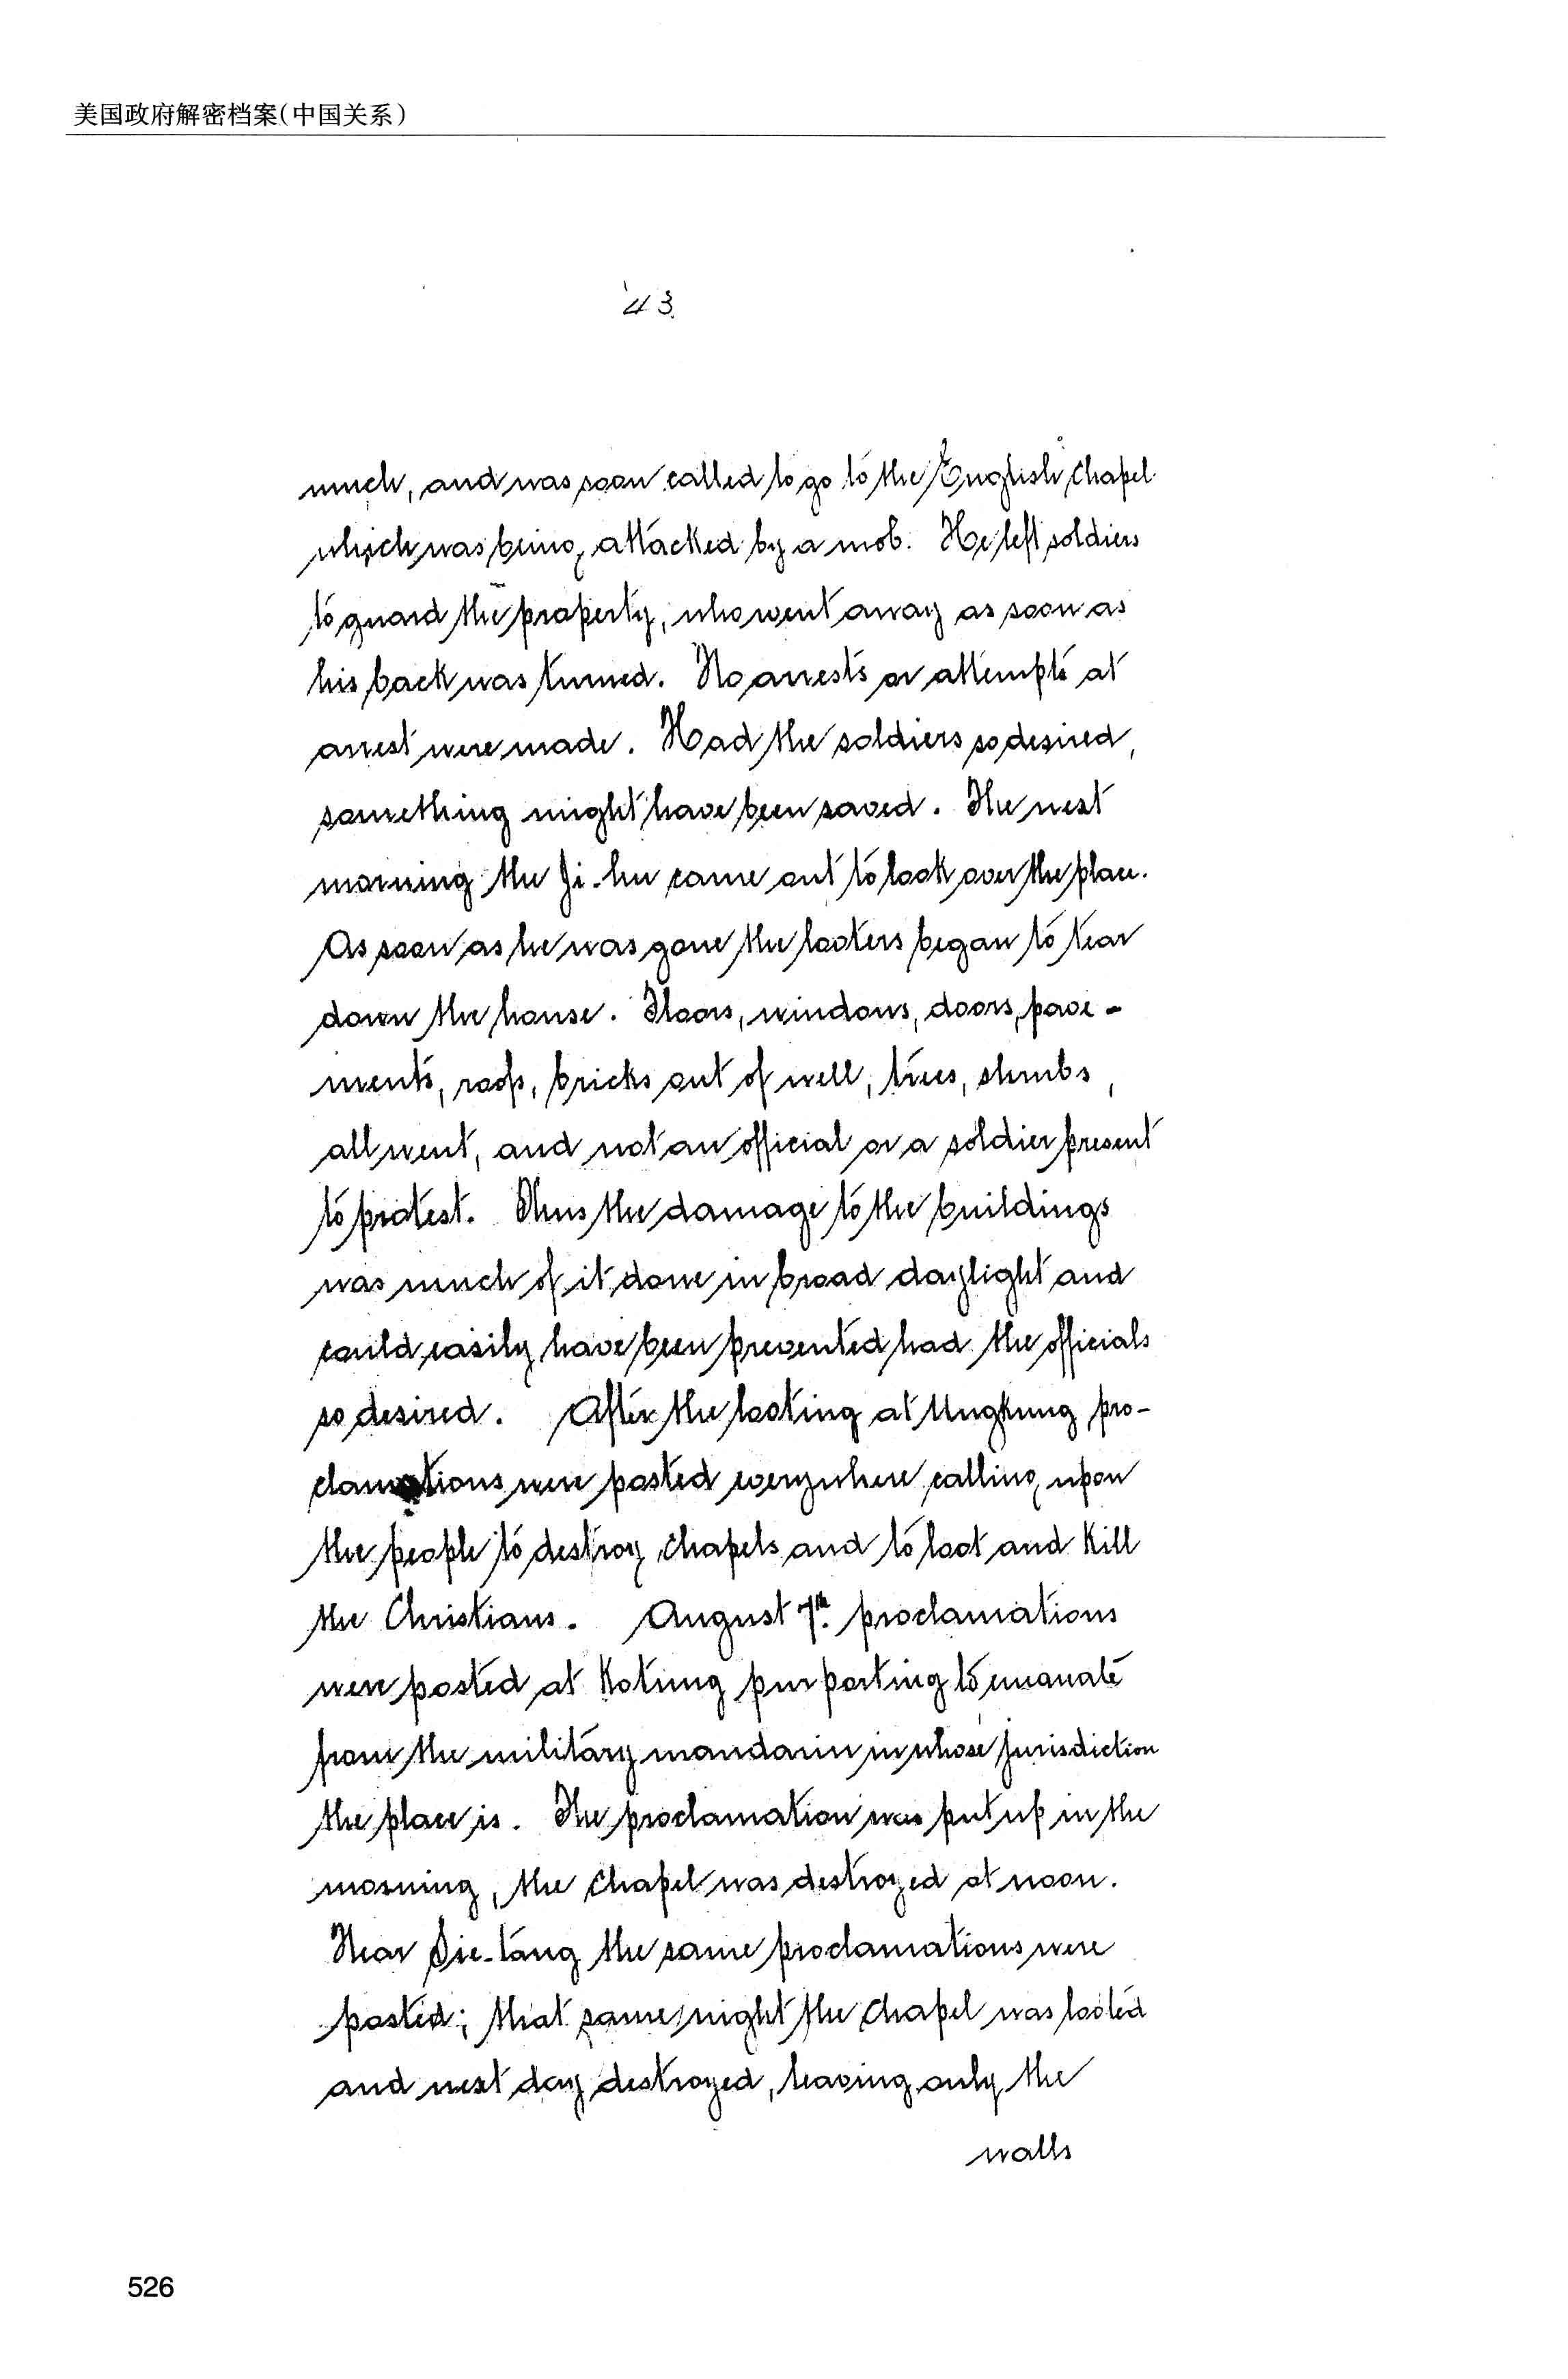 美国政府解密档案(中国关系)
43.
much, and was soon called to go to the English Chapel
which was being attacked by a mob. He left soldiers
to guard the property, who went away as soon as
his back was turned. No arrests or attempts at
arrest were made. Had the soldiers so desired,
something might have been saved. The next
morning the Ji-hu came out to look over the place.
As soon as he was gone the looters began to tear
down the house. Floors, windows, doors, pave-
ments, roofs, bricks out of well, trees, shrubs,
all went, and not an official or a soldier present
to protest. Thus the damage to the buildings
was much of it done in broad daylight and
could easily have been prevented had the officials
so desired. After the looting at Ungkung pro-
clamations were posted everywhere calling upon
the people to destroy chapels and to loot and kill
the Christians. August 7th. proclamations
were posted at Kotung purporting to emanate
from the military mandarin in whose jurisdiction
the place is. The proclamation was put up in the
morning, the chapel was destroyed at noon.
Near Sie-tang the same proclamations were
posted; that same night the chapel was looted
and next day destroyed, leaving only the
walls
526